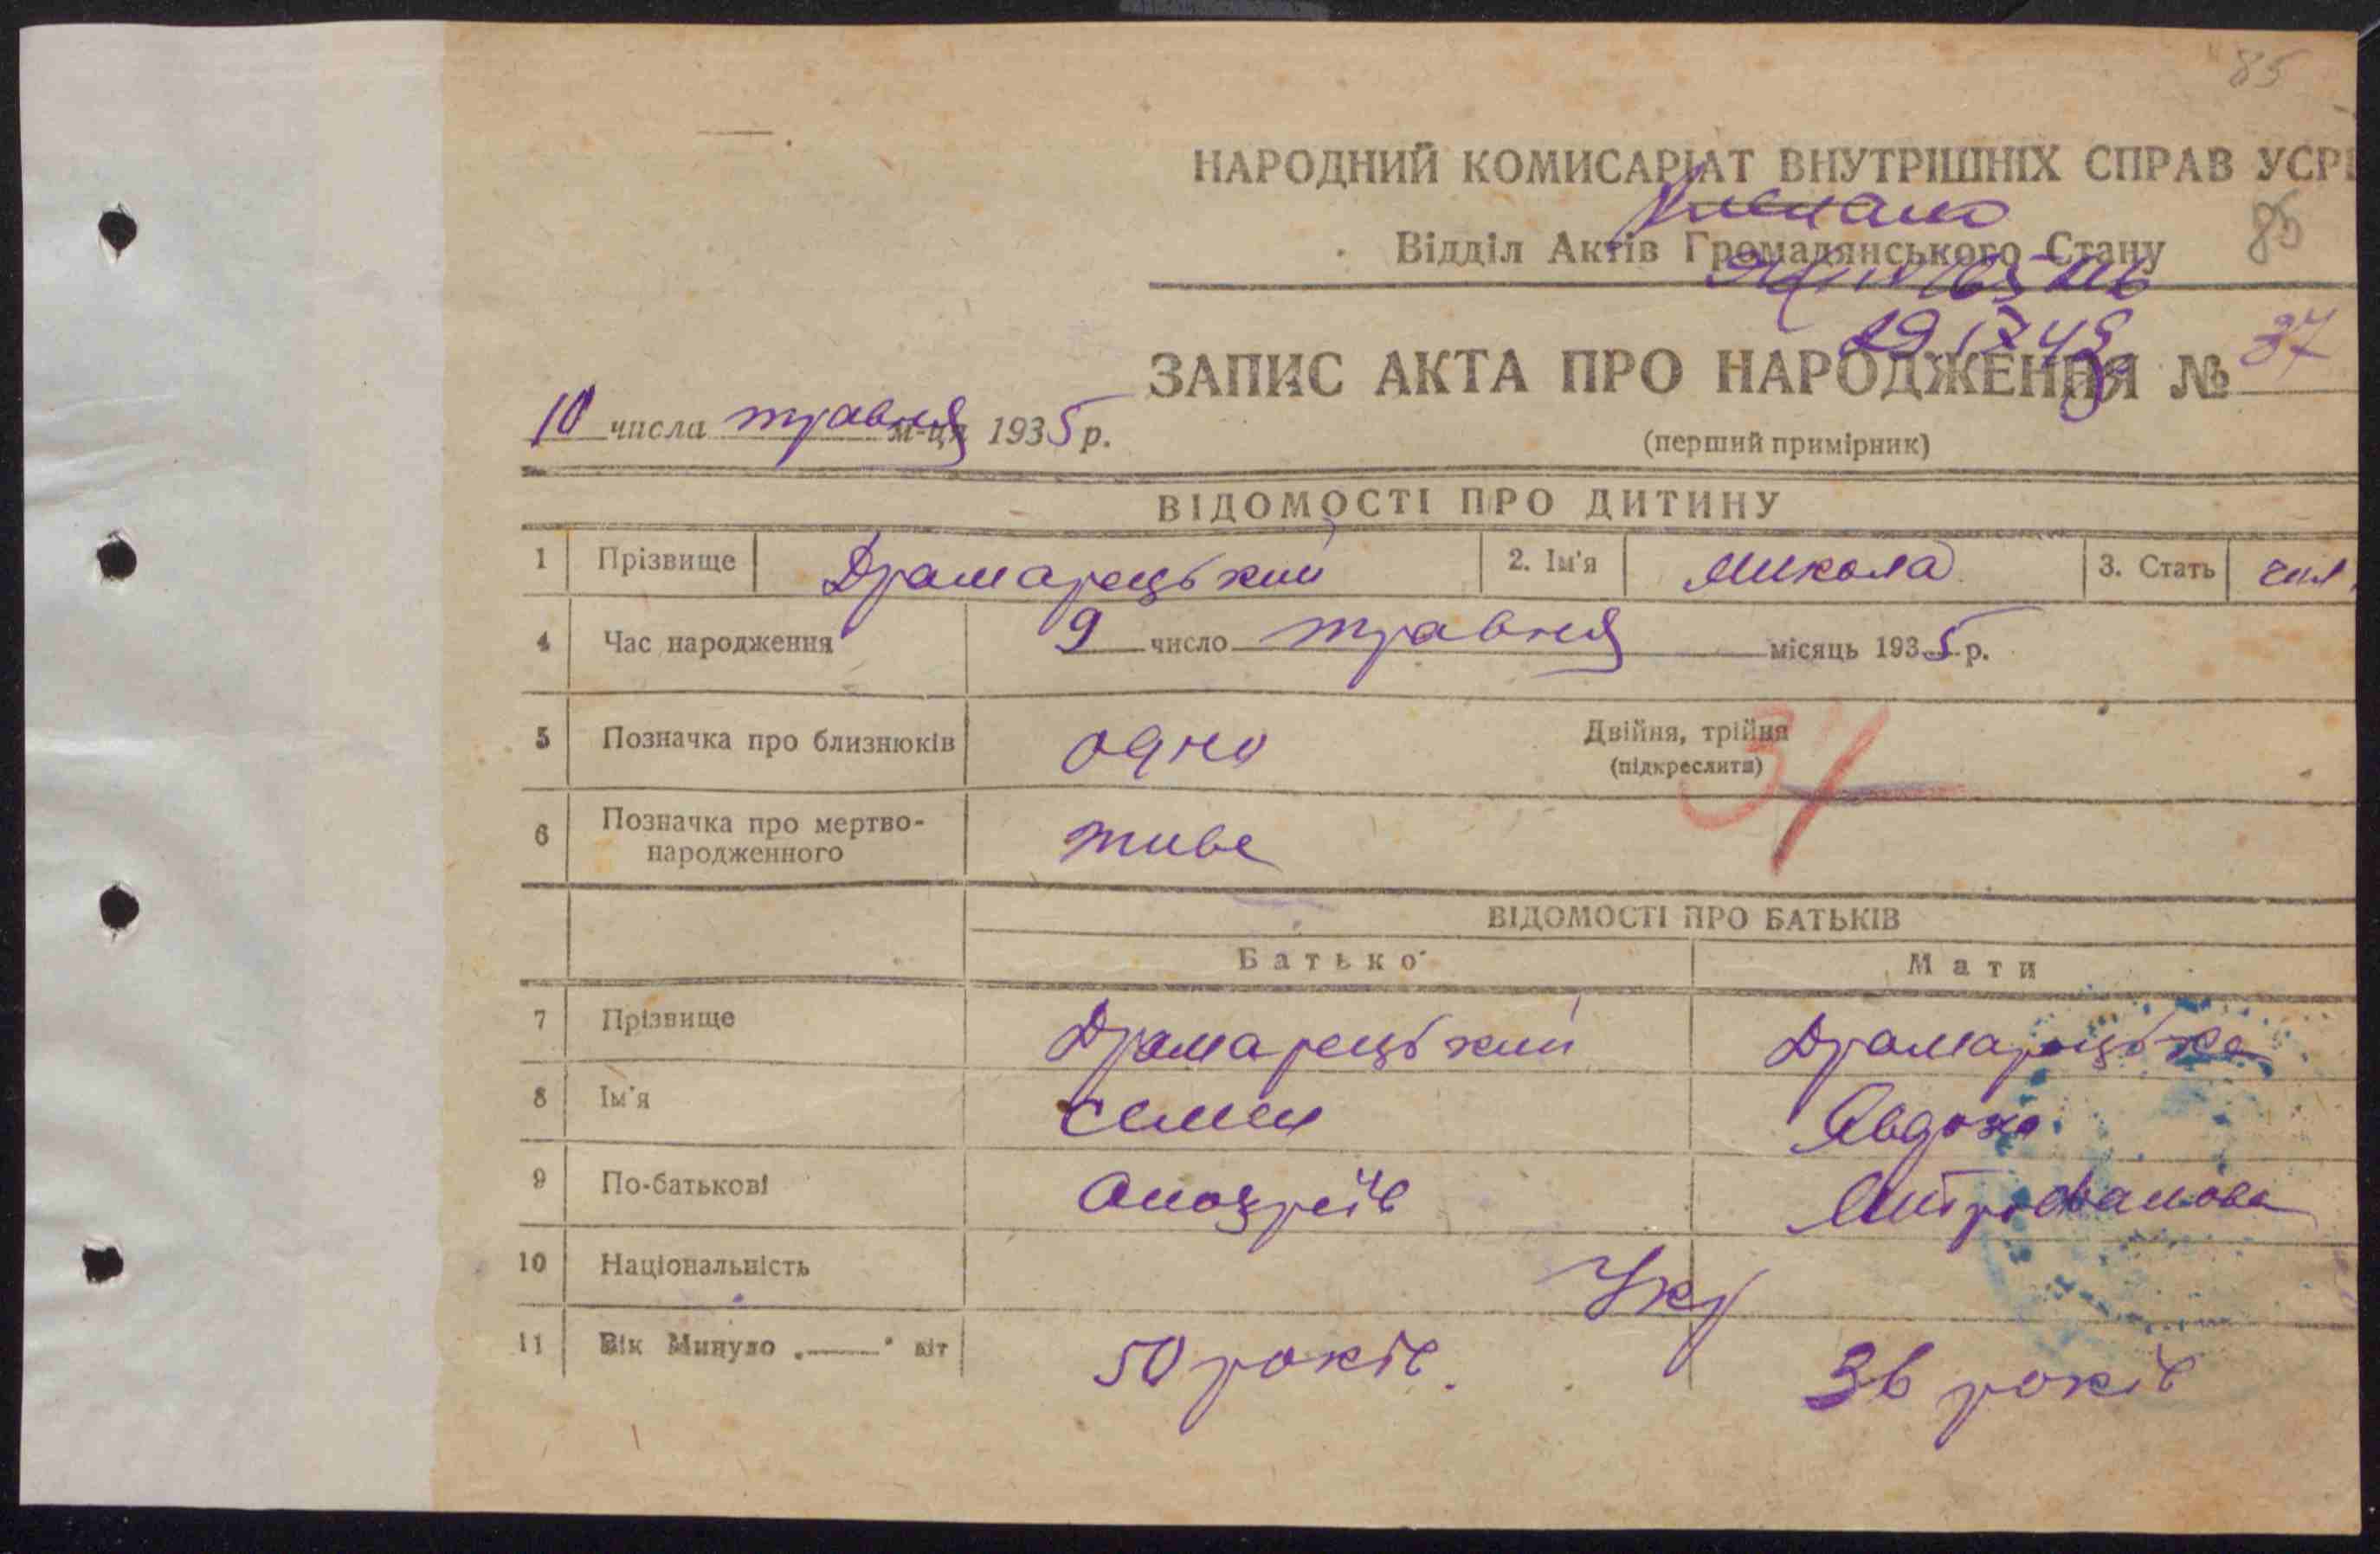 85
НАРОДНИЙ КОМИСАРІАТ ВНУТРІШНІХ СПРАВ УСРР
Відділ Актів Громадянського Стану 85
ЗАПИС АКТА ПРО НАРОДЖЕННЯ № 37
10 числа травня м-ця 1935 р.
(перший примірник)
ВІДОМОСТІ ПРО ДИТИНУ
1 Прізвище Драмарецький 2. Ім'я Микола 3. Стать чол.
4 Час народження 9 число травня місяць 1935 р.
5 Позначка про близнюків одно Двійня, трійня
(підкреслити)
37
6 Позначка про мертво-
народженного живе
ВІДОМОСТІ ПРО БАТЬКІВ
Батько Мати
7 Прізвище Драмарецький Драмарецька
8 Ім'я Семен Явдоха
9 По-батькові Митрофанова
10 Національність Укр
11 Вік Минуло „—" літ 50 років. 36 років